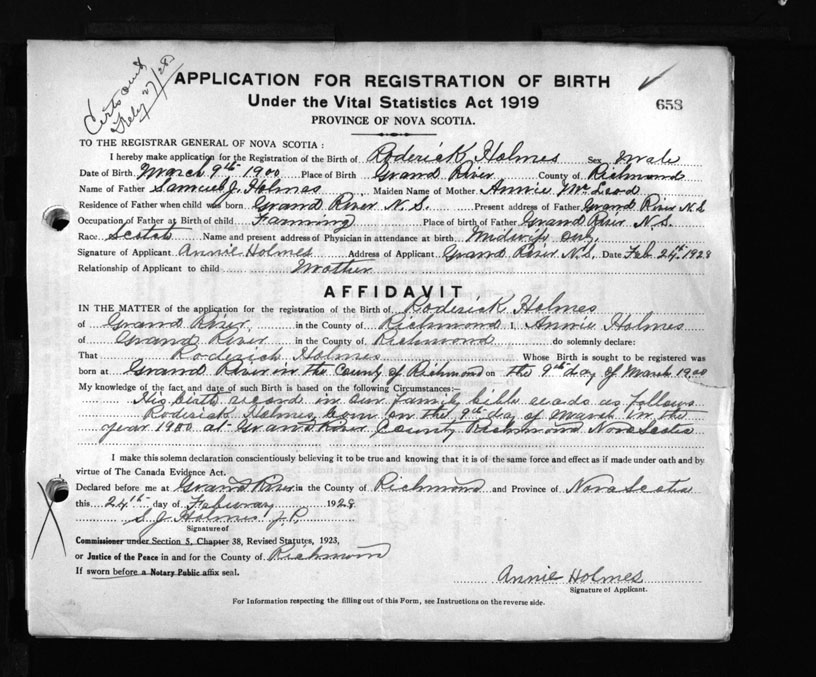 Feby 27/28
APPLICATION FOR REGISTRATION OF BIRTH
Under the Vital Statistics Act 1919
PROVINCE OF NOVA SCOTIA.
658
TO THE REGISTRAR GENERAL OF NOVA SCOTIA :
I hereby make application for the Registration of the Birth of Roderick Holmes Sex Male
Date of Birth March 9th 1900 Place of Birth Grand River County of Richmond
Name of Father Samuel J. Holmes Maiden Name of Mother Annie McLeod
Residence of Father when child was born Grand River N.S. Present address of Father Grand River N.S
Occupation of Father at Birth of child Farming Place of birth of Father Grand River N.S.
Race Name and present address of Physician in attendance at birth Midwife only.
Signature of Applicant Annie Holmes Address of Applicant Grand River N.S. Date Feb 24th 1928
Relationship of Applicant to child Mother
AFFIDAVIT
IN THE MATTER of the application for the registration of the Birth of Roderick Holmes
of Grand River, in the County of Richmond I, Annie Holmes
of Grand River in the County of Richmond do solemnly declare:
That Roderick Holmes Whose Birth is sought to be registered was
born at Grand River in the County of Richmond on the 9th day of March 1900
My knowledge of the fact and date of such Birth is based on the following Circumstances:—
His birth record in our family bible reads as follows
Roderick Holmes, born on the 9th day of March in the
year 1900 at Grand River County Richmond Nova Scotia
I make this solemn declaration conscientiously believing it to be true and knowing that it is of the same force and effect as if made under oath and by
virtue of The Canada Evidence Act.
Declared before me at Grand River in the County of Richmond and Province of Nova Scotia
this 24th day of February 1928
S. J. Holmes J.P.
Signature of
Commissioner under Section 5, Chapter 38, Revised Statutes, 1923,
or Justice of the Peace in and for the County of Richmond
If sworn before a Notary Public affix seal.
Annie Holmes
Signature of Applicant.
For Information respecting the filling out of this Form, see Instructions on the reverse side.